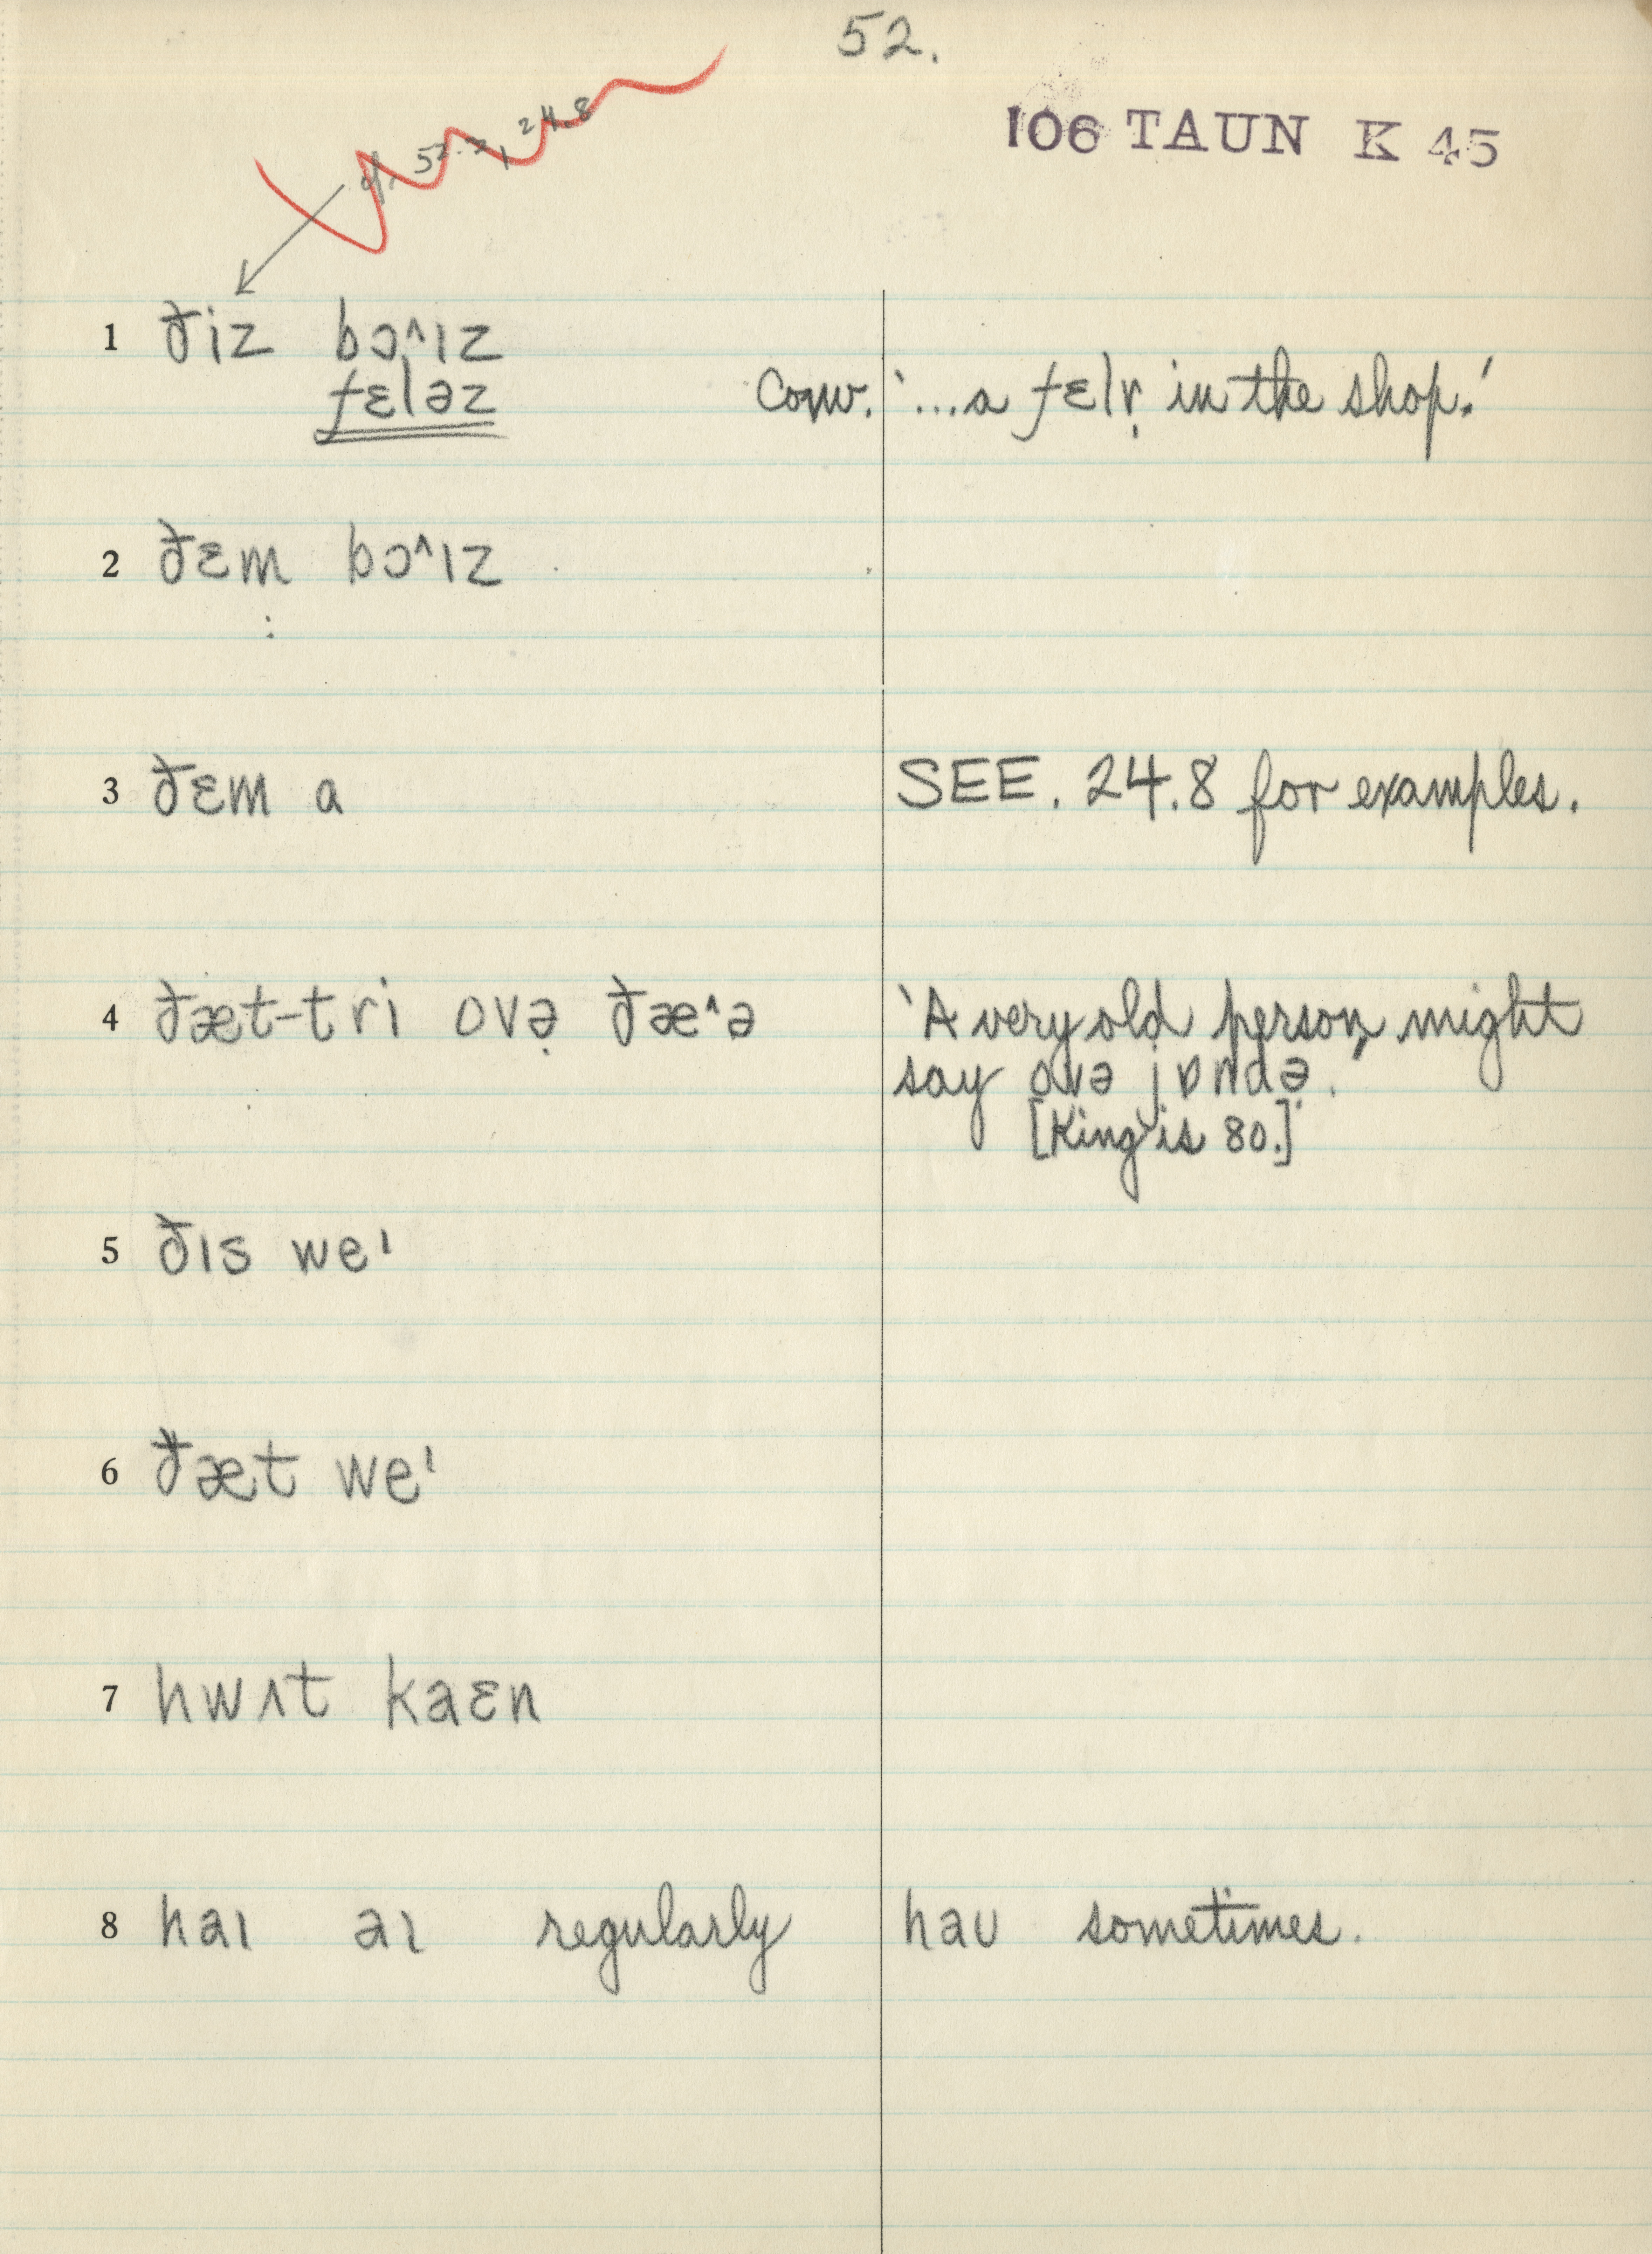 52.
106 TAUN K 45
cf. 52.3, 24.8
1 ðiz bɔ^ɪz
fɛləz Conv. '...a fɛlɤ̣ in the shop.'
2 ðɛm bɔ^ɪz
3 ðɛm a SEE. 24.8 for examples.
4 ðæt-tri ovə̣ ðæ^ə 'A very old person might
say ovə jɒndə.'
[King is 80.]
5 ðɪs weᶦ
6 ðæt weᶦ
7 hwʌt kaɛn
8 haɪ aɪ regularly haʊ sometimes.